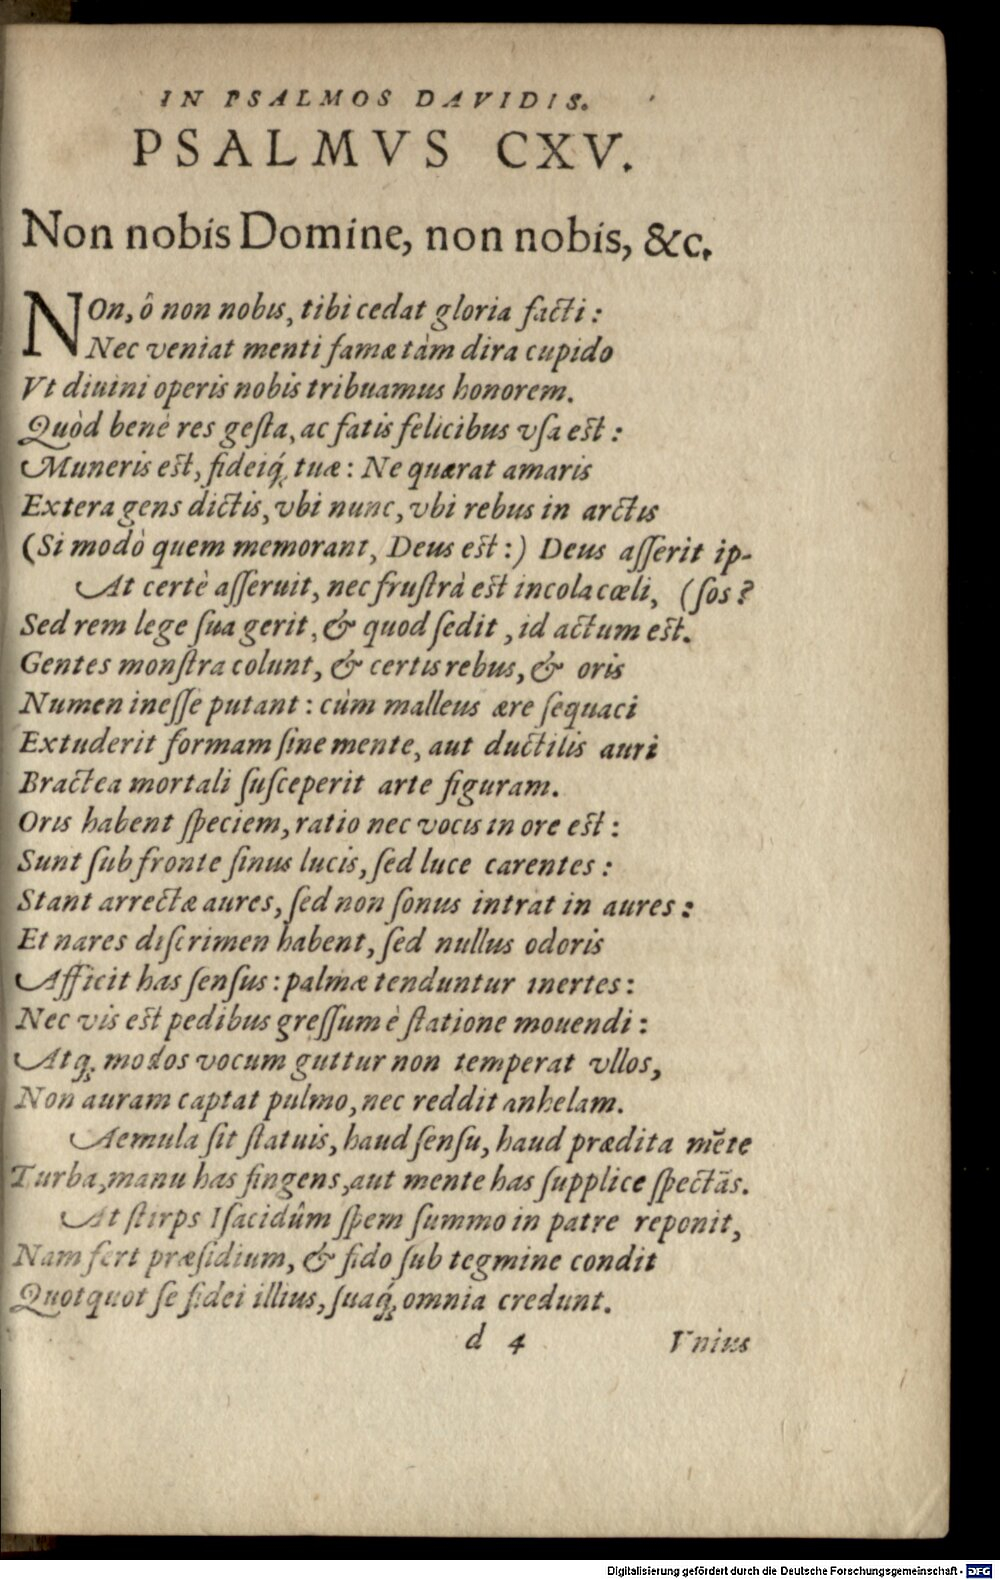 IN PSALMOS DAVIDIS.
PSALMVS CXV.
Non nobis Domine, non nobis, &c.
NOn, ô non nobis, tibi cedat gloria facti:
Nec veniat menti famæ tàm dira cupido
Vt diuini operis nobis tribuamus honorem.
Quòd benè res gesta, ac fatis felicibus vsa est:
Muneris est, fideiq́; tuæ: Ne quærat amaris
Extera gens dictis, vbi nunc, vbi rebus in arctis
(Si modò quem memorant, Deus est:) Deus asserit ip-
At certè asseruit, nec frustrà est incola cæli, (sos?
Sed rem lege sua gerit, & quod sedit, id actum est.
Gentes monstra colunt, & certis rebus, & oris
Numen inesse putant: cúm malleus ære sequaci
Extuderit formam sine mente, aut ductilis auri
Bractea mortali susceperit arte figuram.
Oris habent speciem, ratio nec vocis in ore est:
Sunt sub fronte sinus lucis, sed luce carentes:
Stant arrectæ aures, sed non sonus intrat in aures:
Et nares discrimen habent, sed nullus odoris
Afficit has sensus: palmæ tenduntur inertes:
Nec vis est pedibus gressum è statione mouendi:
Atq; modos vocum guttur non temperat vllos,
Non auram captat pulmo, nec reddit anhelam.
Aemula sit statuis, haud sensu, haud prædita mẽte
Turba, manu has fingens, aut mente has supplice spectãs.
At stirps Isacidûm spem summo in patre reponit,
Nam fert præsidium, & fido sub tegmine condit
Quotquot se fidei illius, suaq́; omnia credunt.
d 4 Vnius
Digitalisierung gefördert durch die Deutsche Forschungsgemeinschaft - DFG